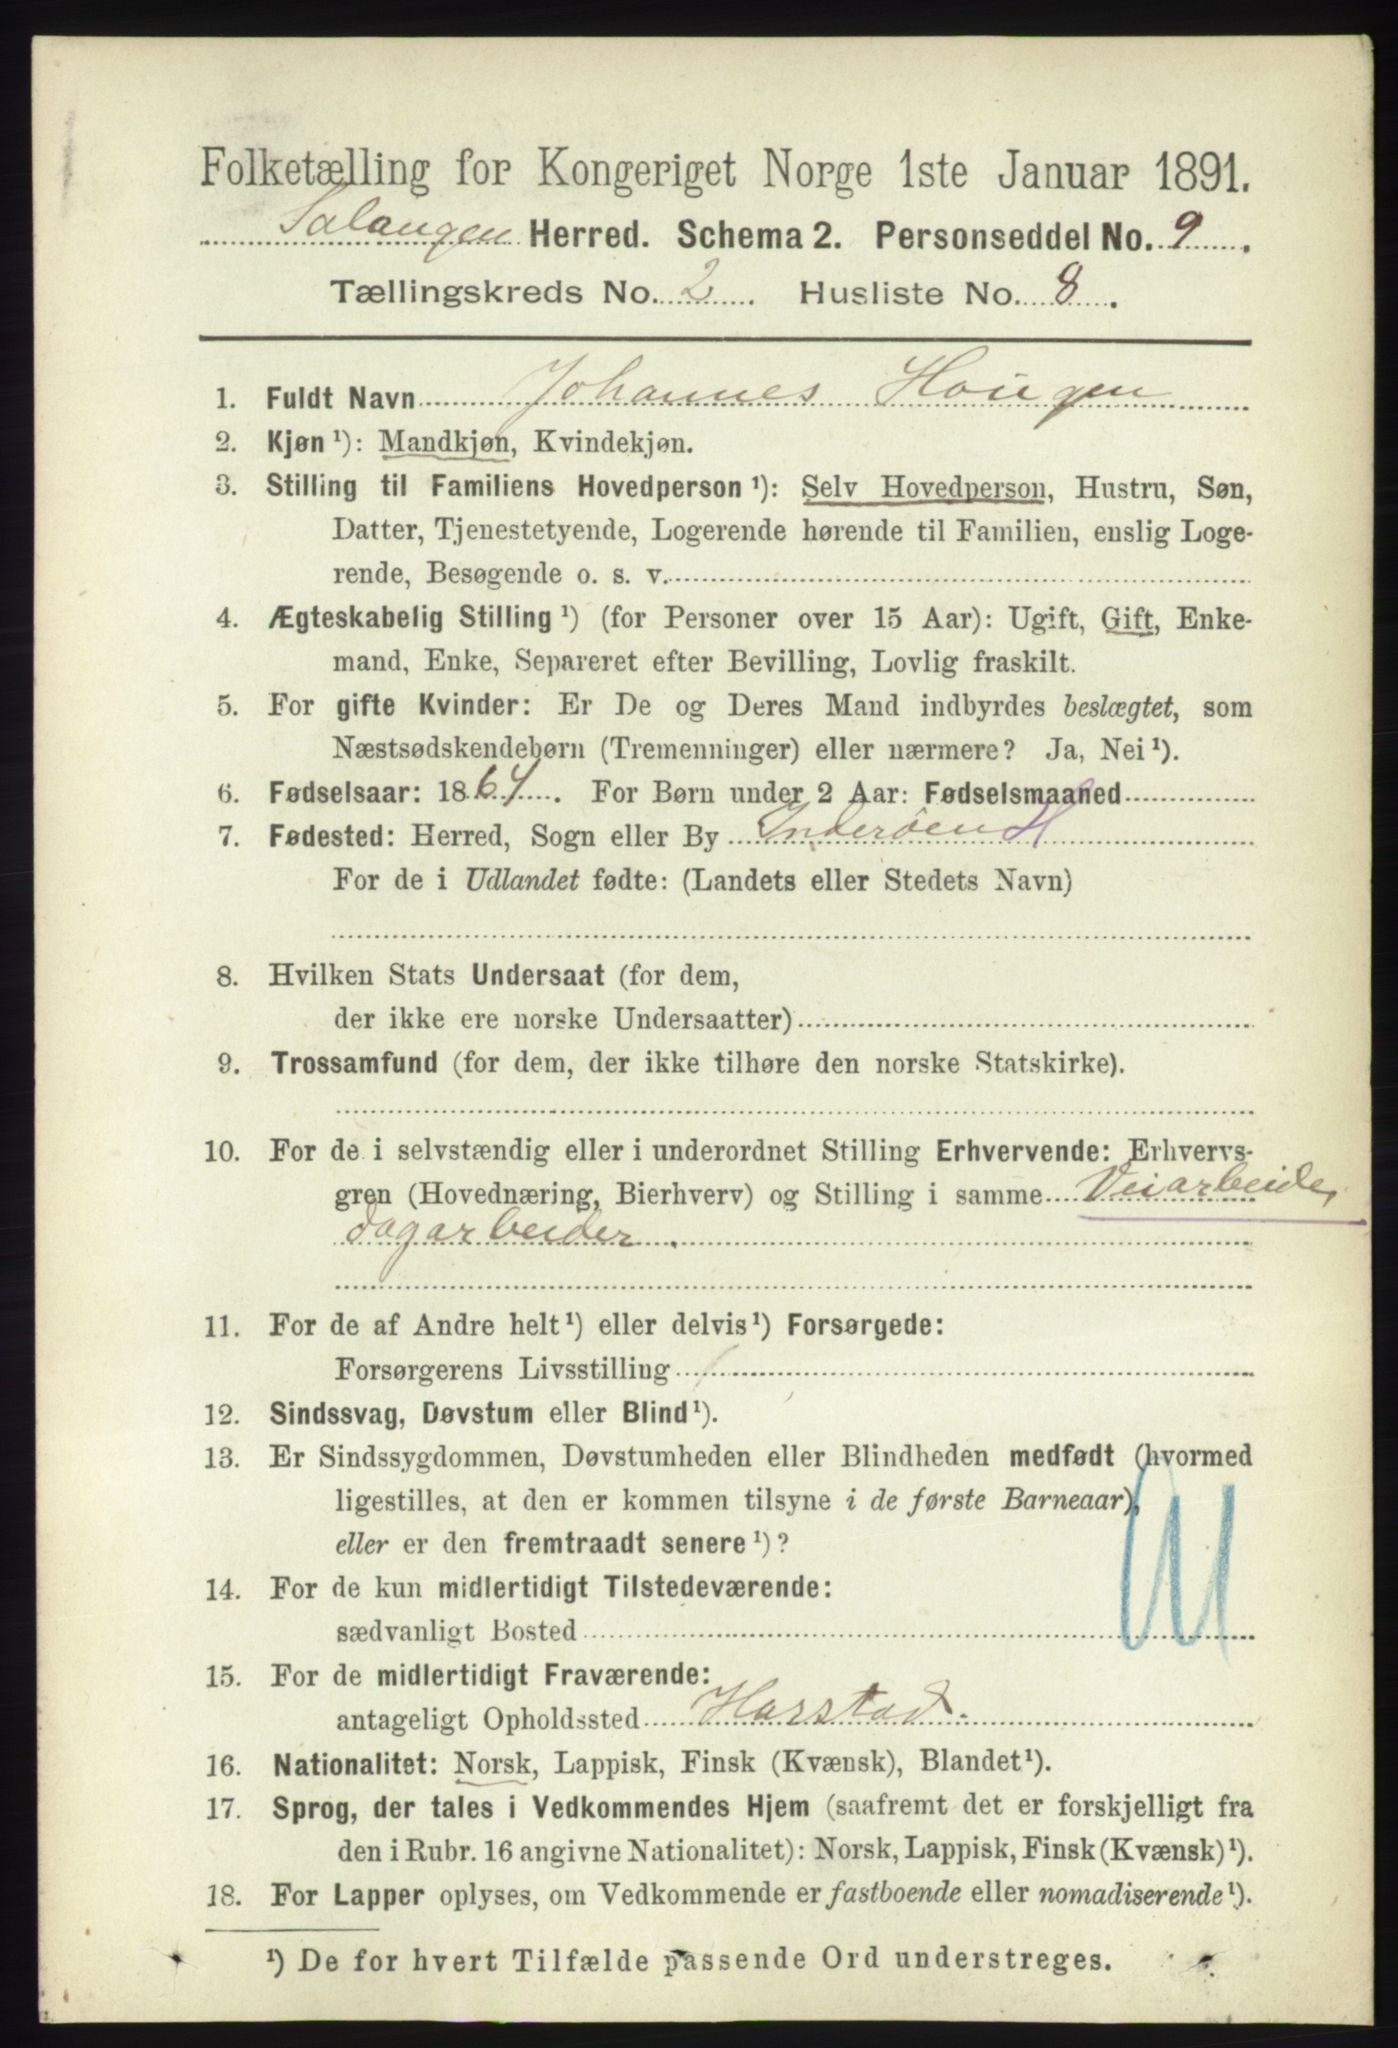 Folketælling for Kongeriget Norge 1ste Januar 1891.
Salangen Herred. Schema 2. Personseddel No. 9.
Tællingskreds No. 2. Husliste No. 8.
1. Fuldt Navn Johannes Hougen
2. Kjøn ¹): Mandkjøn, Kvindekjøn.
3. Stilling til Familiens Hovedperson ¹): Selv Hovedperson, Hustru, Søn,
Datter, Tjenestetyende, Logerende hørende til Familien, enslig Loge-
rende, Besøgende o. s. v.
4. Ægteskabelig Stilling ¹) (for Personer over 15 Aar): Ugift, Gift, Enke-
mand, Enke, Separeret efter Bevilling, Lovlig fraskilt.
5. For gifte Kvinder: Er De og Deres Mand indbyrdes beslægtet, som
Næstsødskendebørn (Tremenninger) eller nærmere? Ja, Nei ¹).
6. Fødselsaar: 1864. For Børn under 2 Aar: Fødselsmaaned
7. Fødested: Herred, Sogn eller By Inderøen H
For de i Udlandet fødte: (Landets eller Stedets Navn)
8. Hvilken Stats Undersaat (for dem,
der ikke ere norske Undersaatter)
9. Trossamfund (for dem, der ikke tilhøre den norske Statskirke).
10. For de i selvstændig eller i underordnet Stilling Erhvervende: Erhvervs-
gren (Hovednæring, Bierhverv) og Stilling i samme Veiarbeide,
dagarbeider.
11. For de af Andre helt ¹) eller delvis ¹) Forsørgede:
Forsørgerens Livsstilling
12. Sindssvag, Døvstum eller Blind ¹).
13. Er Sindssygdommen, Døvstumheden eller Blindheden medfødt (hvormed
ligestilles, at den er kommen tilsyne i de første Barneaar),
eller er den fremtraadt senere ¹)?
14. For de kun midlertidigt Tilstedeværende:
sædvanligt Bosted
15. For de midlertidigt Fraværende:
antageligt Opholdssted Harstad.
16. Nationalitet: Norsk, Lappisk, Finsk (Kvænsk), Blandet ¹).
17. Sprog, der tales i Vedkommendes Hjem (saafremt det er forskjelligt fra
den i Rubr. 16 angivne Nationalitet): Norsk, Lappisk, Finsk (Kvænsk) ¹).
18. For Lapper oplyses, om Vedkommende er fastboende eller nomadiserende ¹).
¹) De for hvert Tilfælde passende Ord understreges.